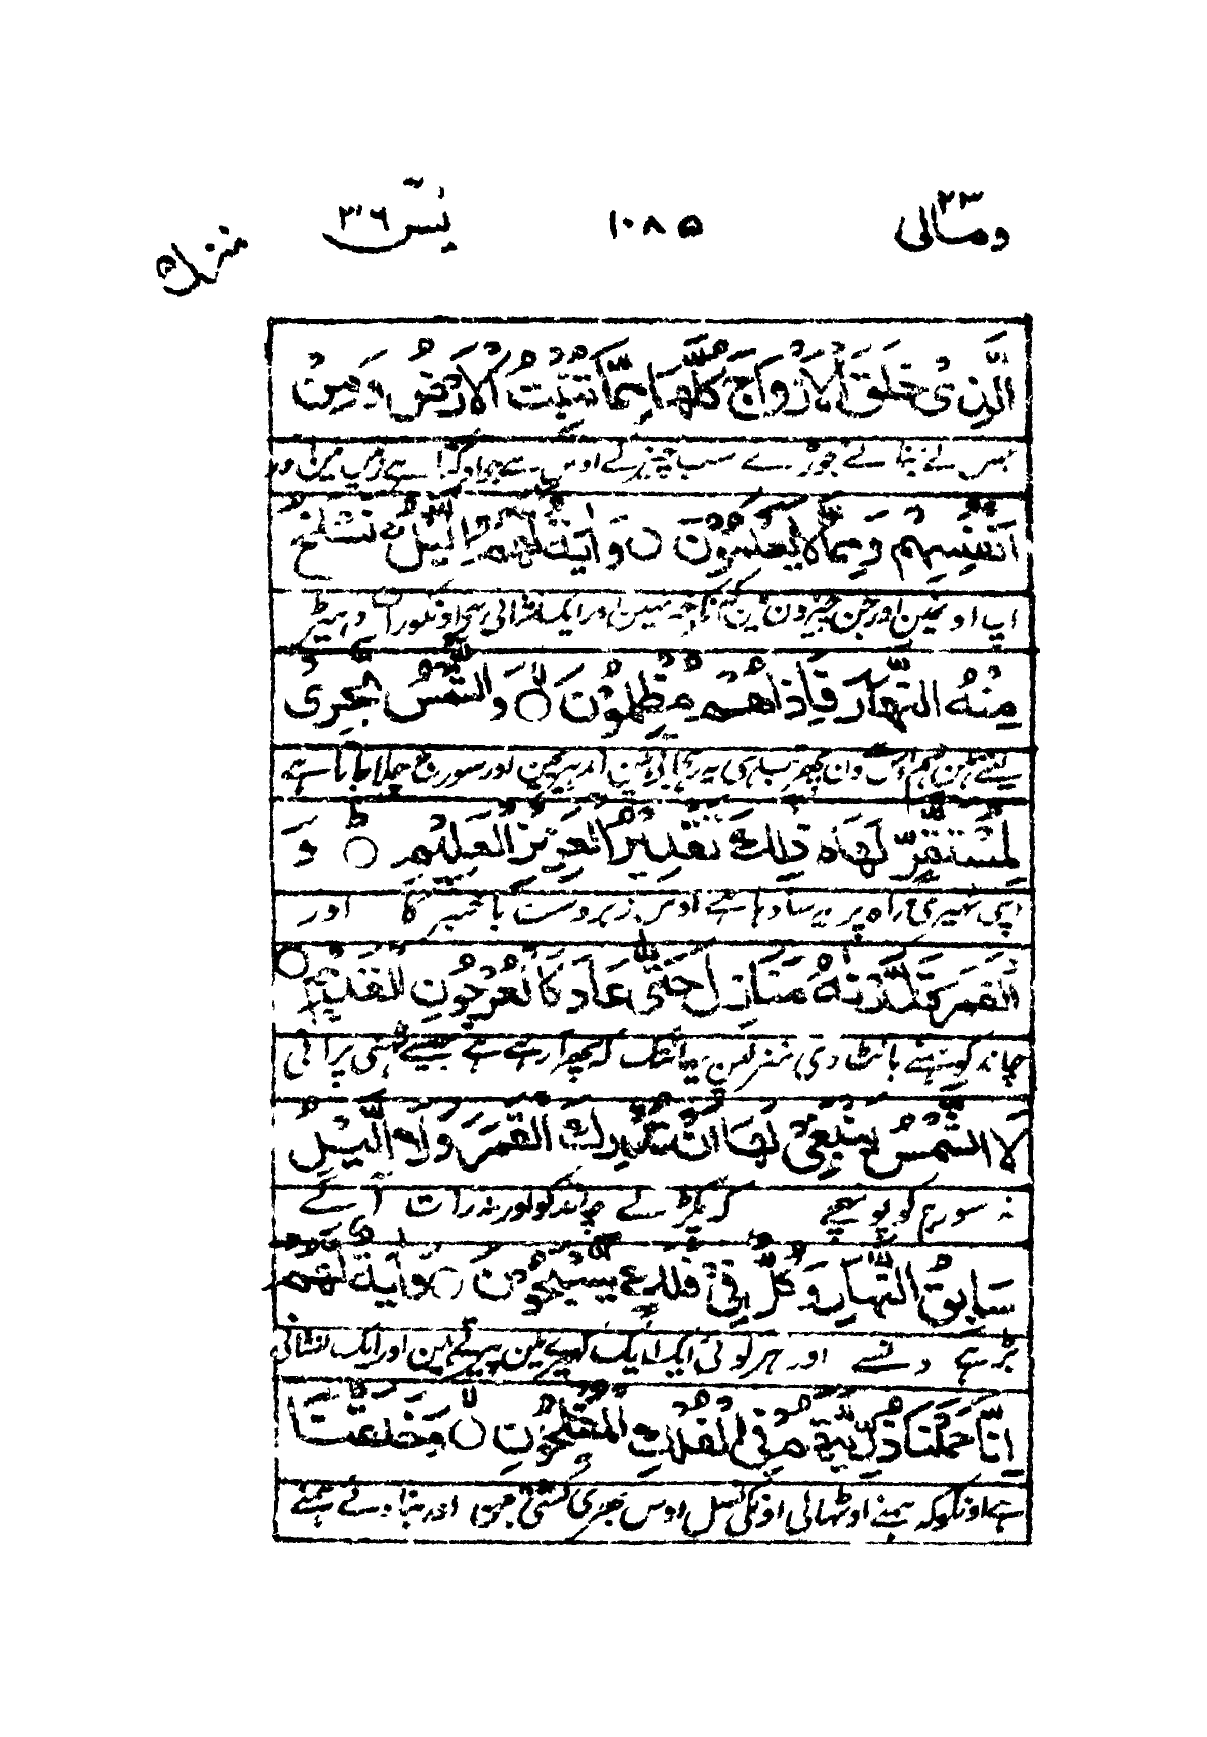 ومالی ٢٣ ١٠٨٥ یٰسٓ ٣٦
منزل ٥
الَّذِیْ خَلَقَ الْاَزْوَاجَ كُلَّهَا مِمَّا تُنْۢبِتُ الْاَرْضُ وَمِنْ
جس نے بنائے جوڑے سب چیز کے اوس سے جو اوگتا ہے زمین مین اور
اَنْفُسِهِمْ وَمِمَّا لَا یَعْلَمُوْنَ ○ وَاٰیَةٌ لَّهُمُ الَّیْلُ نَسْلَخُ
آپ اونمین اور جن چیزون کی خبر نہین اور ایک نشانی ہی اونکو رات اودہیڑ
مِنْهُ النَّهَارَ فَاِذَاهُمْ مُّظْلِمُوْنَ ○ وَالشَّمْسُ تَجْرِیْ
لیتے ہین ہم اوس دن پھر تب ہی یہ رہجاتے ہین اندہیرےمین اور سورج چلا جاتا ہے
لِمُسْتَقَرٍّ لَّهَا ذٰلِكَ تَقْدِیْرُ الْعَزِیْزِ الْعَلِیْمِ ○ وَ
اپنی ٹھیری راہ پر یہ سادہا ہے اوس زبردست باخبر کا اور
الْقَمَرَ قَدَّرْنٰهُ مَنَازِلَ حَتّٰی عَادَ كَالْعُرْجُوْنِ الْقَدِیْمِ ○
چاند کو ہمنے بانٹ دی منزلین یہانتک کہ پھر آرہے ہے جیسے ٹہنی پرانی
لَا الشَّمْسُ یَنْۢبَغِیْ لَهَا اَنْ تُدْرِكَ الْقَمَرَ وَلَا الَّیْلُ
نہ سورج کو پہونچے کہ پکڑ لے چاند کو اور نہ رات آگے
سَابِقُ النَّهَارِ وَكُلٌّ فِیْ فَلَكٍ یَّسْبَحُوْنَ ○ وَاٰیَةٌ لَّهُمْ
بڑہے دنسے اور ہر کوئی ایک ایک گھیرے مین پیرتے ہین اور ایک نشانی
اِنَّا حَمَلْنَا ذُرِّیَّتَهُمْ فِی الْفُلْكِ الْمَشْحُوْنِ ○ وَخَلَقْنَا
ہے اونکو کہ ہمنے اوٹھالی اونکی نسل اوس بھری کشتی مین اور بنا دئے ہمنے